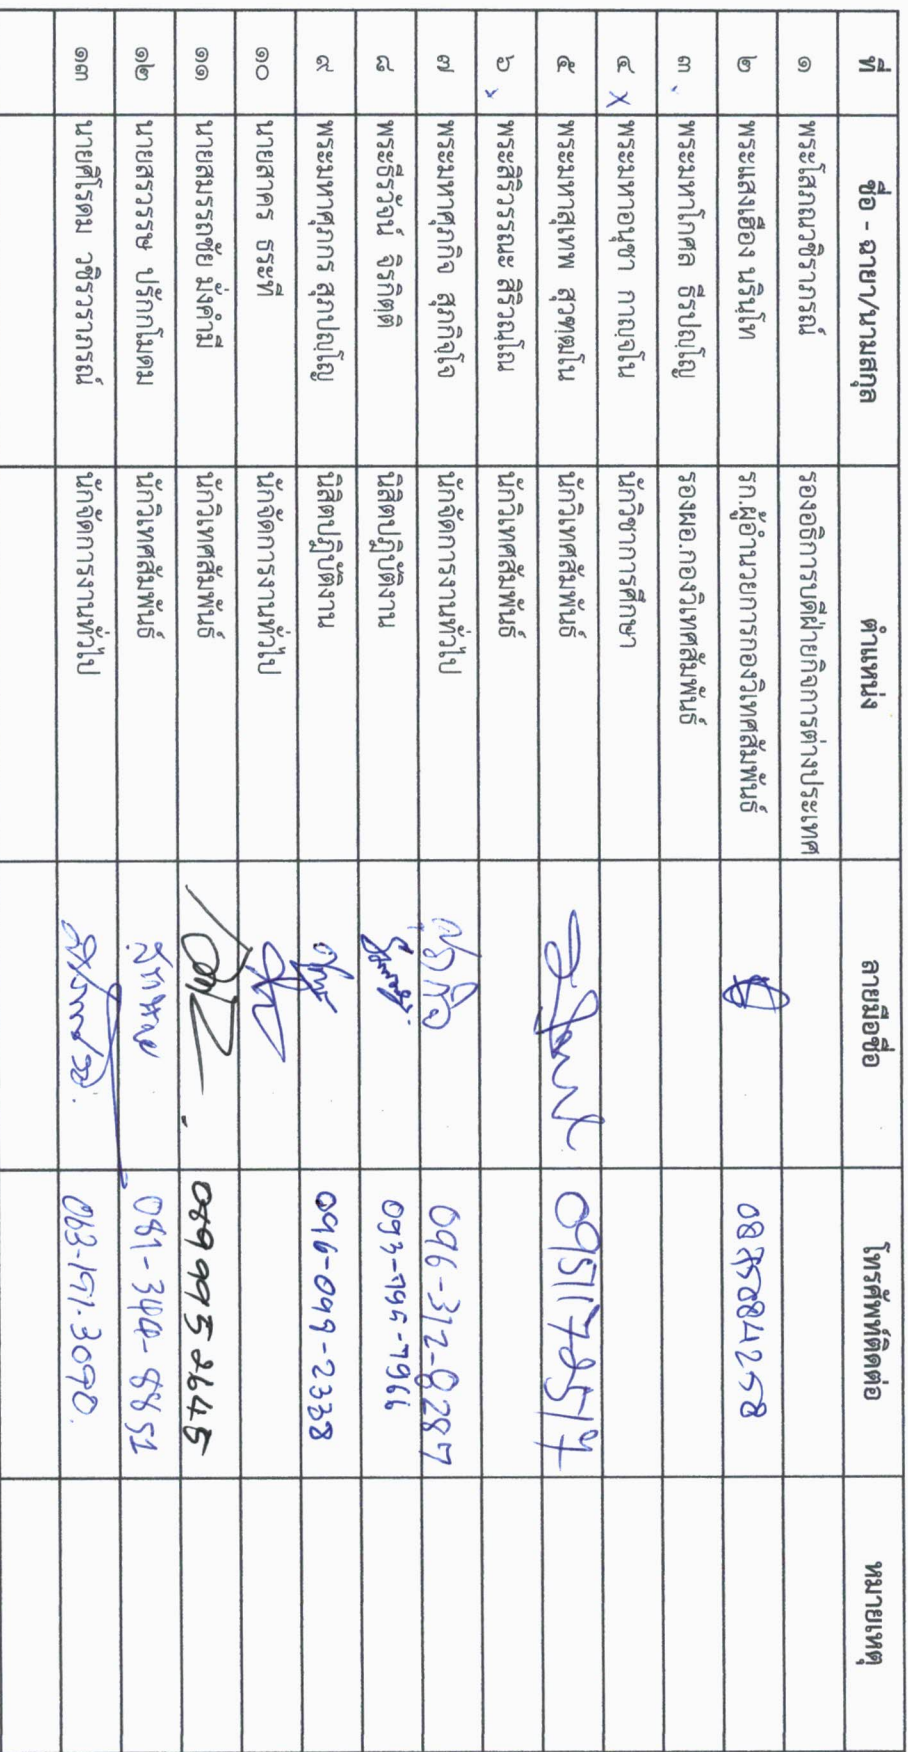 ที่ ชื่อ - ฉายา/นามสกุล ตำแหน่ง ลายมือชื่อ โทรศัพท์ติดต่อ หมายเหตุ
๑ พระโสภณวชิราภรณ์ รองอธิการบดีฝ่ายกิจการต่างประเทศ
๒ พระแสงเฮือง นรินฺโท รก.ผู้อำนวยการกองวิเทศสัมพันธ์ 0875084258
๓ พระมหาโกศล ธีรปญฺโญ รองผอ.กองวิเทศสัมพันธ์
๔ X พระมหาอนุชา กาญจโน นักวิชาการศึกษา
๕ พระมหาสุเทพ สุวฑฺฒโน นักวิเทศสัมพันธ์
๖ x พระสิริวรรณะ สิริวณฺโณ นักวิเทศสัมพันธ์
๗ พระมหาศุภกิจ สุภกิจฺโจ นักจัดการงานทั่วไป ศุภกิจ 096-312-8287
๘ พระธีรวัจน์ จิรกิตฺติ นิสิตปฏิบัติงาน
๙ พระมหาศุภกร สุภปญฺโญ นิสิตปฏิบัติงาน 096-099-2338
๑๐ นายสาคร ธระที นักจัดการงานทั่วไป
๑๑ นายสมรรถชัย มั่งคำมี นักวิเทศสัมพันธ์ 0899952645
๑๒ นายสรวรรษ ปรักกโมดม นักวิเทศสัมพันธ์ 081-344-8851
๑๓ นายศิโรดม วชิรวราภรณ์ นักจัดการงานทั่วไป 063-191-3090